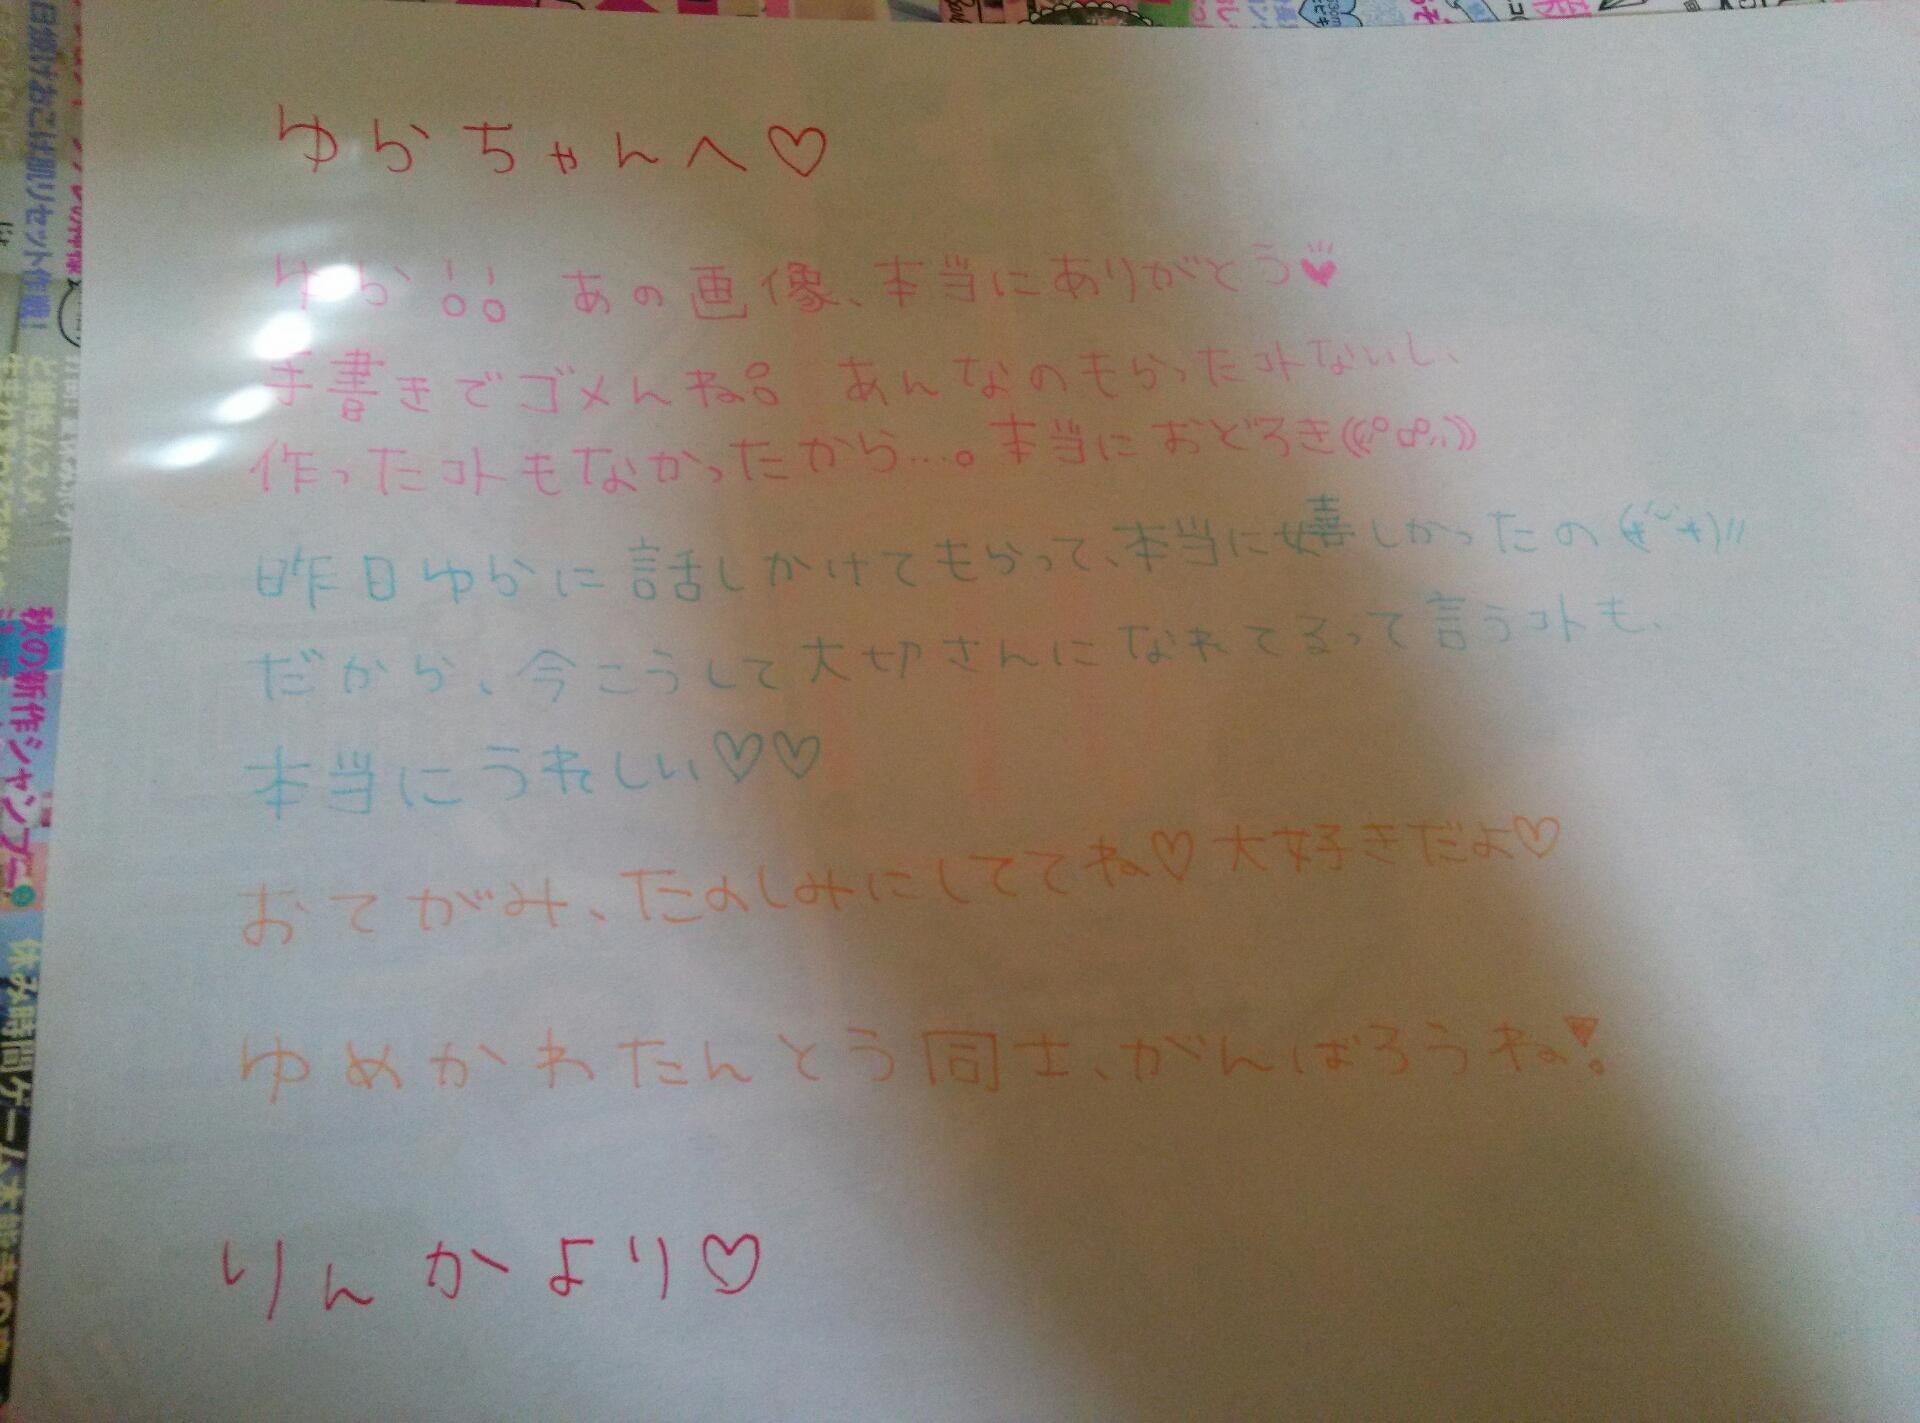 ゆらちゃんへ♡
ゆら！！ あの画像、本当にありがとう♥
手書きでゴメんね。 あんなのもらったコトないし、
作ったコトもなかったから…。本当におどろき
昨日ゆらに話しかけてもらって、本当に嬉しかったの
だから、今こうして大切さんになれてるって言うコトも、
本当にうれしい♡♡
おてがみ、たのしみにしててね♡大好きだよ♡
ゆめかわたんとう同士、がんばろうね！
りんかより♡
日焼けおこげ肌リセット作戦！
秋の新作シャンプー
休み時間ゲーム